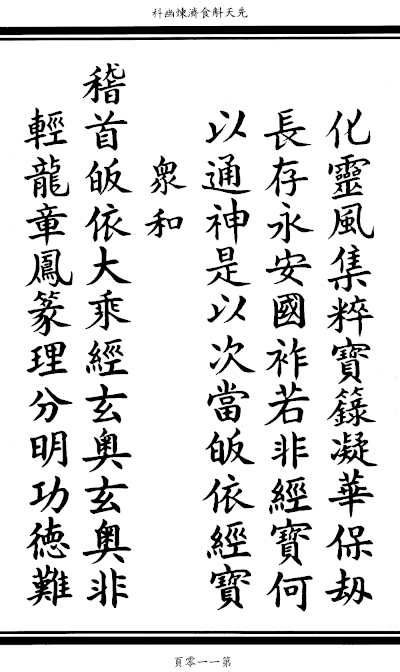 先天斛食濟煉幽科
化靈風集粹寶籙凝華保劫
長存永安國祚若非經寶何
以通神是以次當皈依經寶
眾和
稽首皈依大乘經玄奧玄奧非
輕龍章鳳篆理分明功德難
第一一零頁